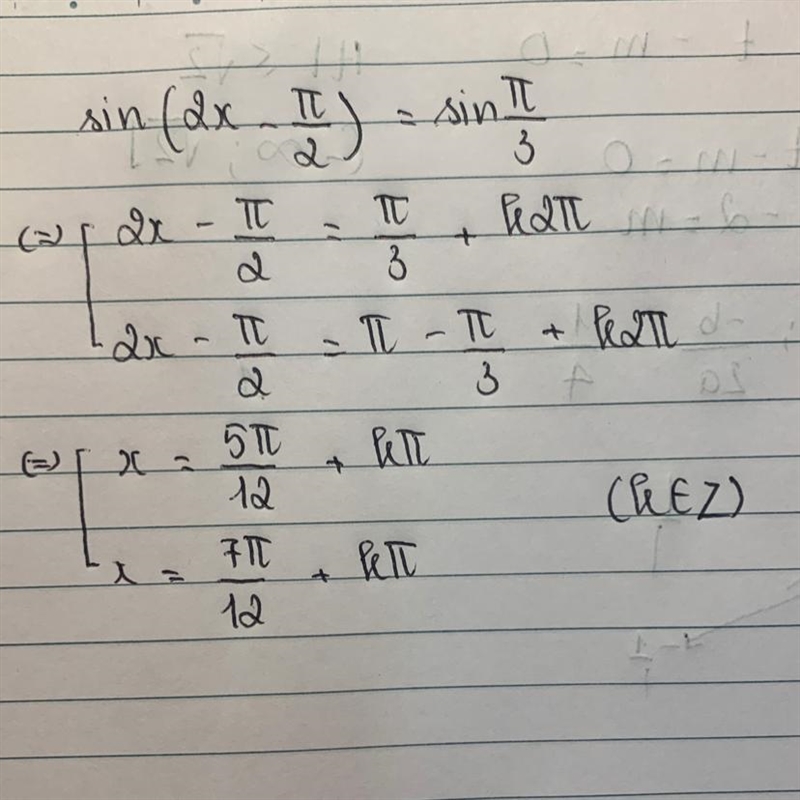 sin(2x - π/2) = sin π/3
(=) [ 2x - π/2 = π/3 + k2π
2x - π/2 = π - π/3 + k2π
(=) [ x = 5π/12 + kπ
(k∈Z)
x = 7π/12 + kπ